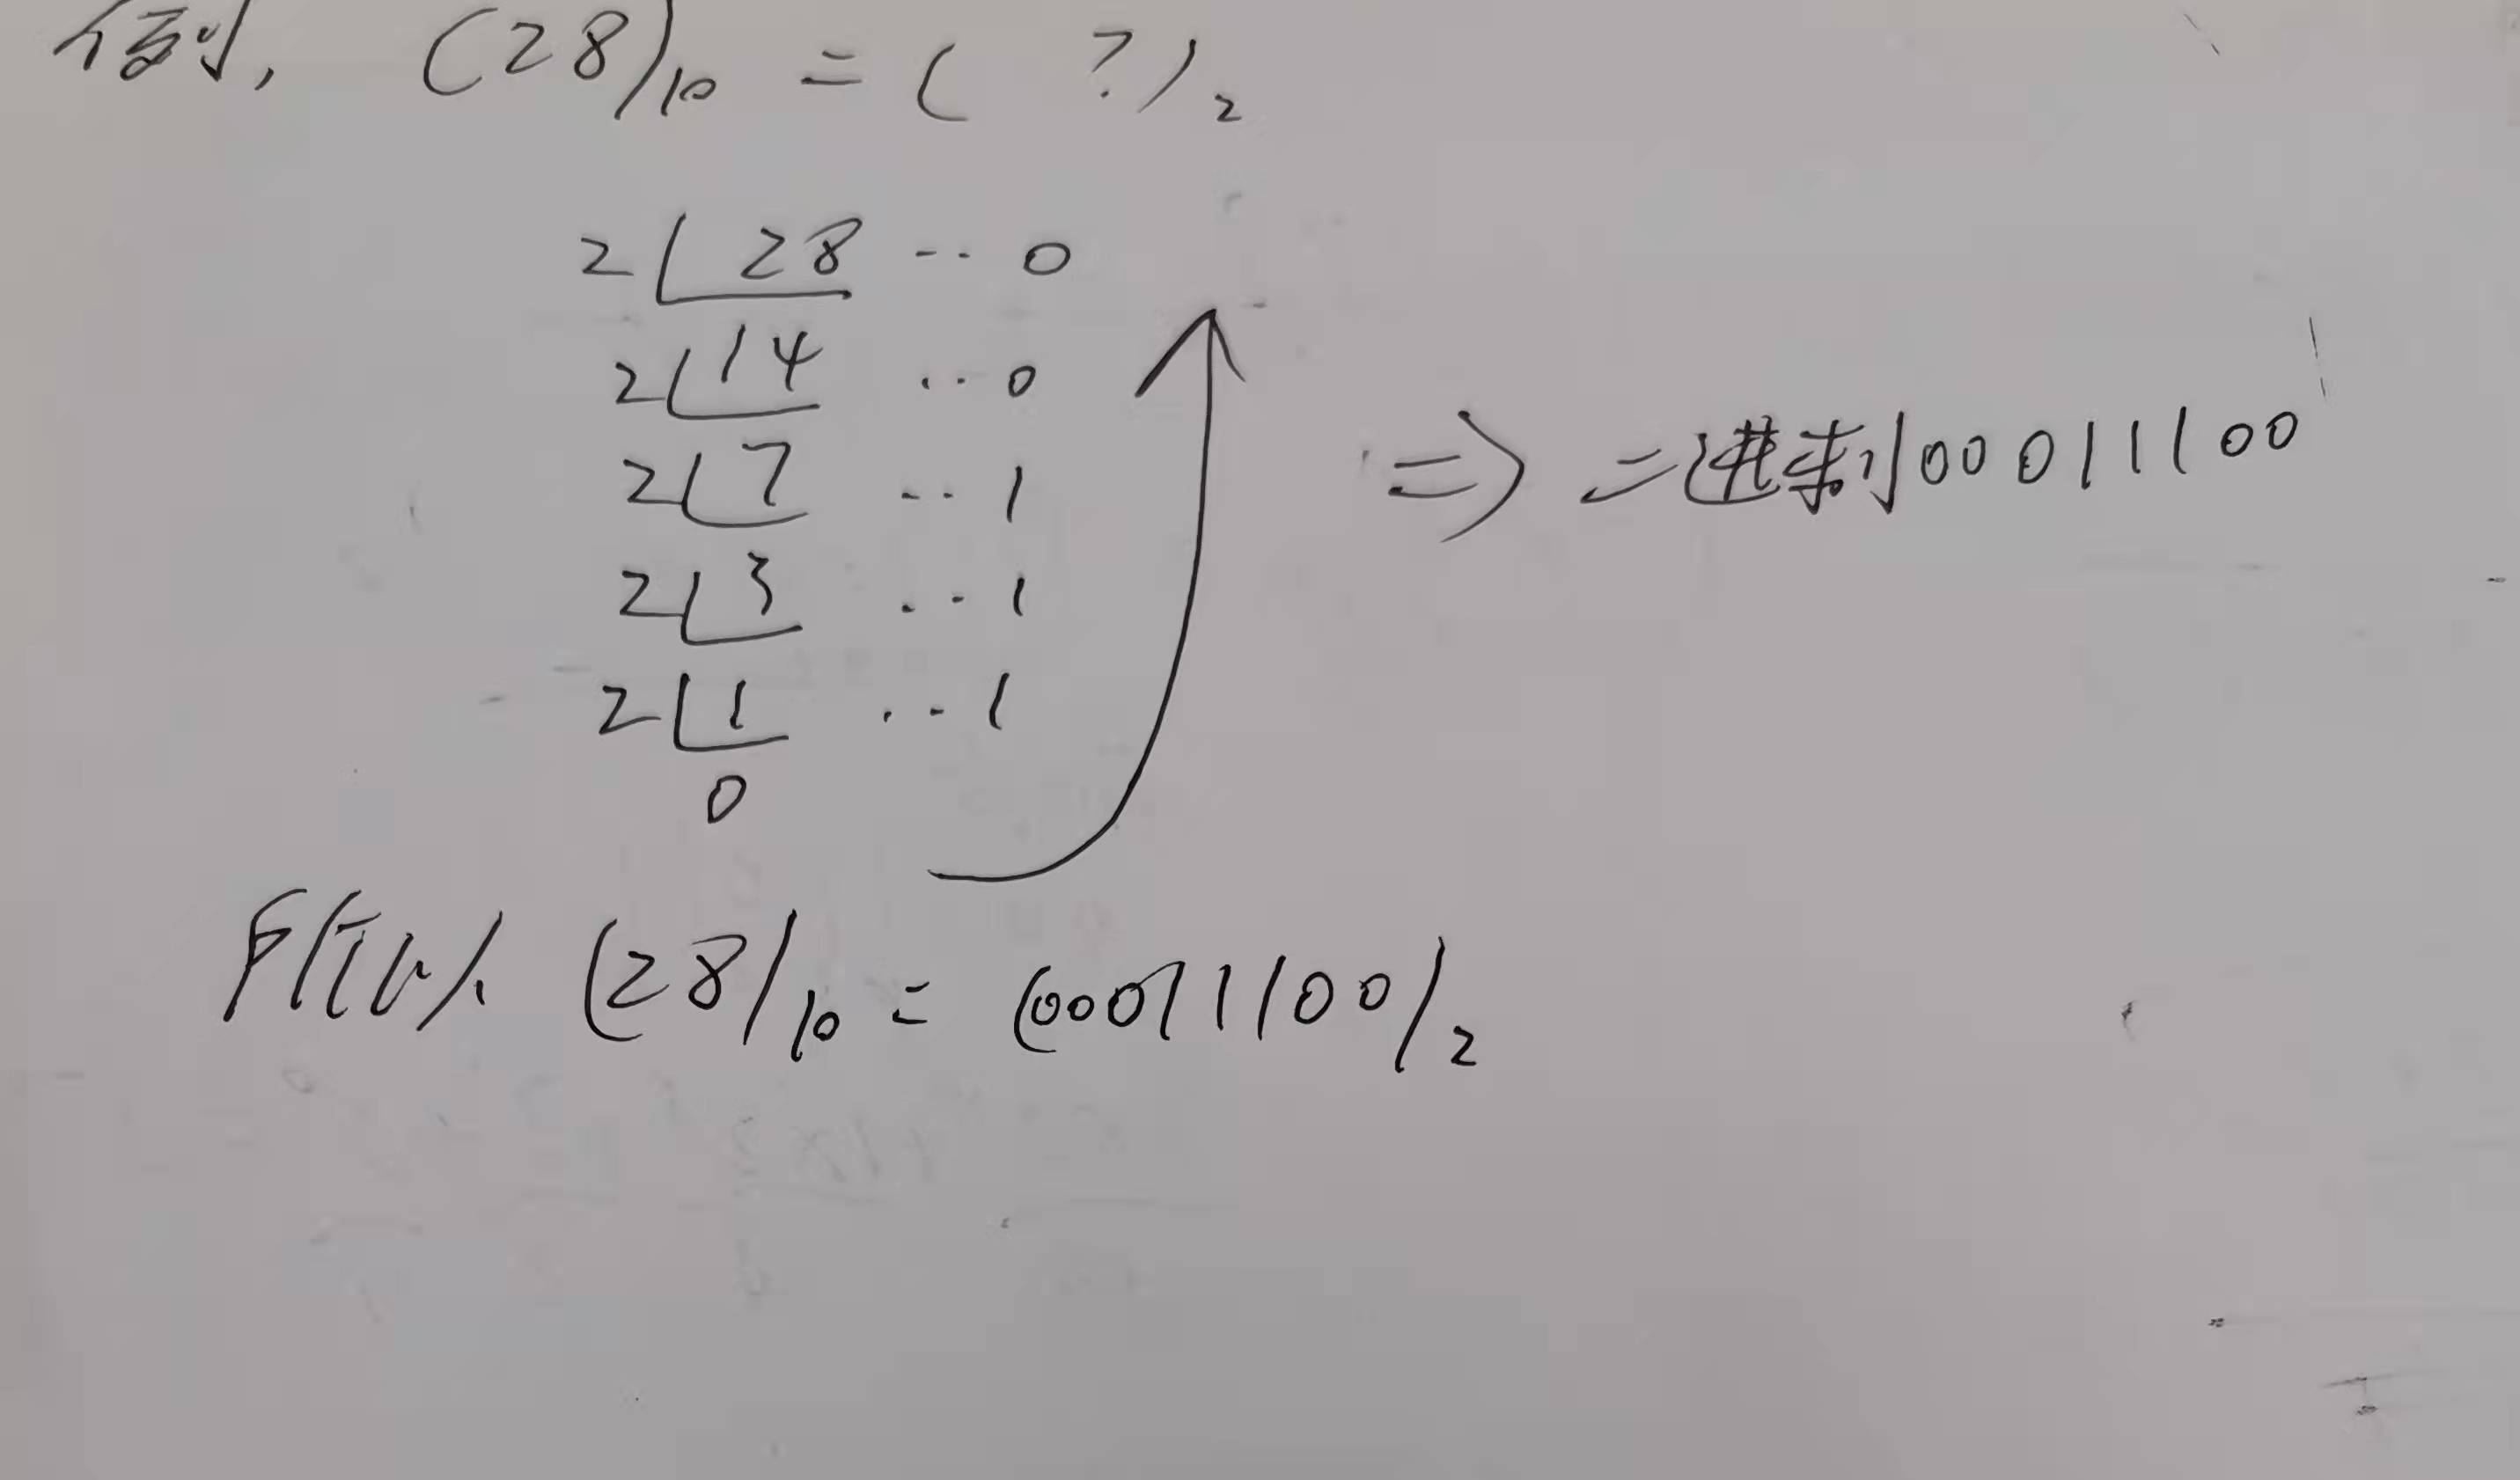 例, (28)10 = ( ?)2
2 28 -- 0
2 14 ·· 0
2 7 -- 1
2 3 ·- 1
2 1 ·- 1
0
=> 二进制00011100
所以 (28)10 = (00011100)2